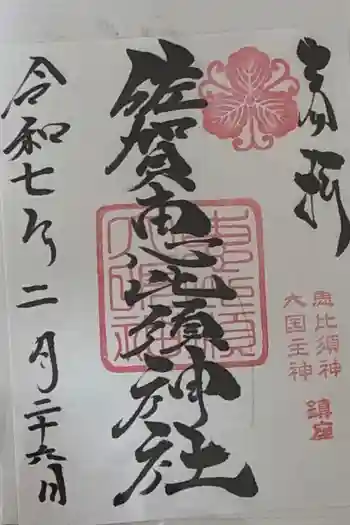 奉拝
恵比須神
大国主神
鎮座
佐賀恵比須神社
令和七年二月二十六日